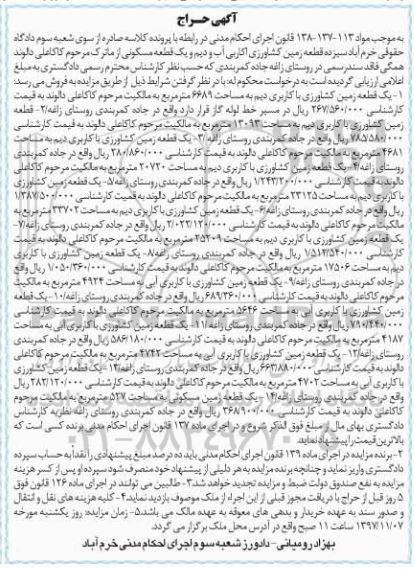 آگهی حـــراج
به موجب مواد ۱۱۳-۱۳۷-۱۳۸ قانون اجرای احکام مدنی در رابطه با پرونده کلاسه صادره از سوی شعبه سوم دادگاه
حقوقی خرم آباد سیزده قطعه زمین کشاورزی اکاربی آب و دیم و یک قطعه مسکونی از ماترک مرحوم کاکاعلی دالوند
همگی فاقد سند رسمی در روستای زاغه جاده کمربندی که حسب نظر کارشناس محترم رسمی دادگستری به مبلغ
اعلامی ارزیابی گردیده است به درخواست محکوم له با در نظر گرفتن شرایط ذیل از طریق مزایده به فروش می رسد:
۱- یک قطعه زمین کشاورزی با کاربری دیم به مساحت ۶۶۸۹ مترمربع به مالکیت مرحوم کاکاعلی دالوند به قیمت
کارشناسی ۲۶۷/۵۶۰/۰۰۰ ریال در مسیر خط لوله گاز قرار دارد واقع در جاده کمربندی روستای زاغه/۲- قطعه
زمین کشاورزی با کاربری دیم به مساحت ۱۳۰۹۳ مترمربع به مالکیت مرحوم کاکاعلی دالوند به قیمت کارشناسی
۷۸۵/۵۸۰/۰۰۰ ریال واقع در جاده کمربندی روستای زاغه/۳- یک قطعه زمین کشاورزی با کاربری دیم به مساحت
۴۶۸۱ مترمربع به مالکیت مرحوم کاکاعلی دالوند به قیمت کارشناسی ۲۸۰/۸۶۰/۰۰۰ ریال واقع در جاده کمربندی
روستای زاغه/۴- یک قطعه زمین کشاورزی با کاربری دیم به مساحت ۲۰۷۲۰ مترمربع به مالکیت مرحوم کاکاعلی
دالوند به قیمت کارشناسی ۱/۲۴۳/۲۰۰/۰۰۰ ریال واقع در جاده کمربندی روستای زاغه/۵- یک قطعه زمین کشاورزی
با کاربری دیم به مساحت ۲۳۱۲۵ مترمربع به مالکیت مرحوم کاکاعلی دالوند به قیمت کارشناسی ۱/۳۸۷/۵۰۰/۰۰۰
ریال واقع در جاده کمربندی روستای زاغه/۶- یک قطعه زمین کشاورزی با کاربری دیم به مساحت ۳۳۷۰۲ مترمربع به
مالکیت مرحوم کاکاعلی دالوند به قیمت کارشناسی ۲/۰۲۲/۱۲۰/۰۰۰ ریال واقع در جاده کمربندی روستای زاغه/۷-
یک قطعه زمین کشاورزی با کاربری دیم به مساحت ۲۵۲۰۹ مترمربع به مالکیت مرحوم کاکاعلی دالوند به قیمت
کارشناسی ۱/۵۱۲/۵۴۰/۰۰۰ ریال واقع در جاده کمربندی روستای زاغه/۸- یک قطعه زمین کشاورزی با کاربری
دیم به مساحت ۱۷۵۰۶ مترمربع به مالکیت مرحوم کاکاعلی دالوند به قیمت کارشناسی ۱/۰۵۰/۳۶۰/۰۰۰ ریال واقع
در جاده کمربندی روستای زاغه/۹- یک قطعه زمین کشاورزی با کاربری آبی به مساحت ۴۹۲۴ مترمربع به مالکیت
مرحوم کاکاعلی دالوند به قیمت کارشناسی ۶۸۹/۳۶۰/۰۰۰ ریال واقع در جاده کمربندی روستای زاغه/۱۰- یک قطعه
زمین کشاورزی با کاربری آبی به مساحت ۵۶۴۶ مترمربع به مالکیت مرحوم کاکاعلی دالوند به قیمت کارشناسی
۷۹۰/۴۴۰/۰۰۰ ریال واقع در جاده کمربندی روستای زاغه/۱۱- یک قطعه زمین کشاورزی با کاربری آبی به مساحت
۴۱۸۷ مترمربع به مالکیت مرحوم کاکاعلی دالوند به قیمت کارشناسی ۵۸۶/۱۸۰/۰۰۰ ریال واقع در جاده کمربندی
روستای زاغه/۱۲- یک قطعه زمین کشاورزی با کاربری آبی به مساحت ۴۷۴۲ مترمربع به مالکیت مرحوم کاکاعلی
دالوند به قیمت کارشناسی ۶۶۳/۸۸۰/۰۰۰ ریال واقع در جاده کمربندی روستای زاغه/۱۳- یک قطعه زمین کشاورزی
با کاربری آبی به مساحت ۴۷۰۲ مترمربع به مالکیت مرحوم کاکاعلی دالوند به قیمت کارشناسی ۲۸۲/۱۲۰/۰۰۰ ریال
واقع در جاده کمربندی روستای زاغه/۱۴- یک قطعه زمین مسکونی به مساحت ۵۲۷ مترمربع به مالکیت مرحوم
کاکاعلی دالوند به قیمت کارشناسی ۳۶۸/۹۰۰/۰۰۰ ریال واقع در جاده کمربندی روستای زاغه نظریه کارشناس
دادگستری بهای مال از مبلغ فوق الذکر شروع و در اجرای ماده ۱۳۷ قانون اجرای احکام مدنی برنده کسی است که
بالاترین قیمت را پیشنهاد نماید.
۲- برنده مزایده در اجرای ماده ۱۳۹ قانون اجرای احکام مدنی باید ده درصد مبلغ پیشنهادی را نقدا به حساب سپرده
دادگستری واریز نماید و چنانچه برنده مزایده به هر دلیلی از پیشنهاد خود منصرف شود سپرده او پس از کسر هزینه
مزایده به نفع صندوق دولت ضبط و مزایده تجدید خواهد شد۳- طالبین می توانند در اجرای ماده ۱۲۶ قانون فوق
۵ روز قبل از حراج با دریافت مجوز قبلی از این اجراء از ملک موصوف بازدید نمایند۴- کلیه هزینه های نقل و انتقال
و صدور سند به عهده خریدار و بدهی های معوقه به عهده مالک می باشد۵- زمان مزایده: روز یکشنبه مورخه
۱۳۹۷/۱۱/۰۷ ساعت ۱۱ صبح واقع در آدرس محل ملک برگزار می گردد.
بهزاد رومیانی- دادورز شعبه سوم اجرای احکام مدنی خرم آباد